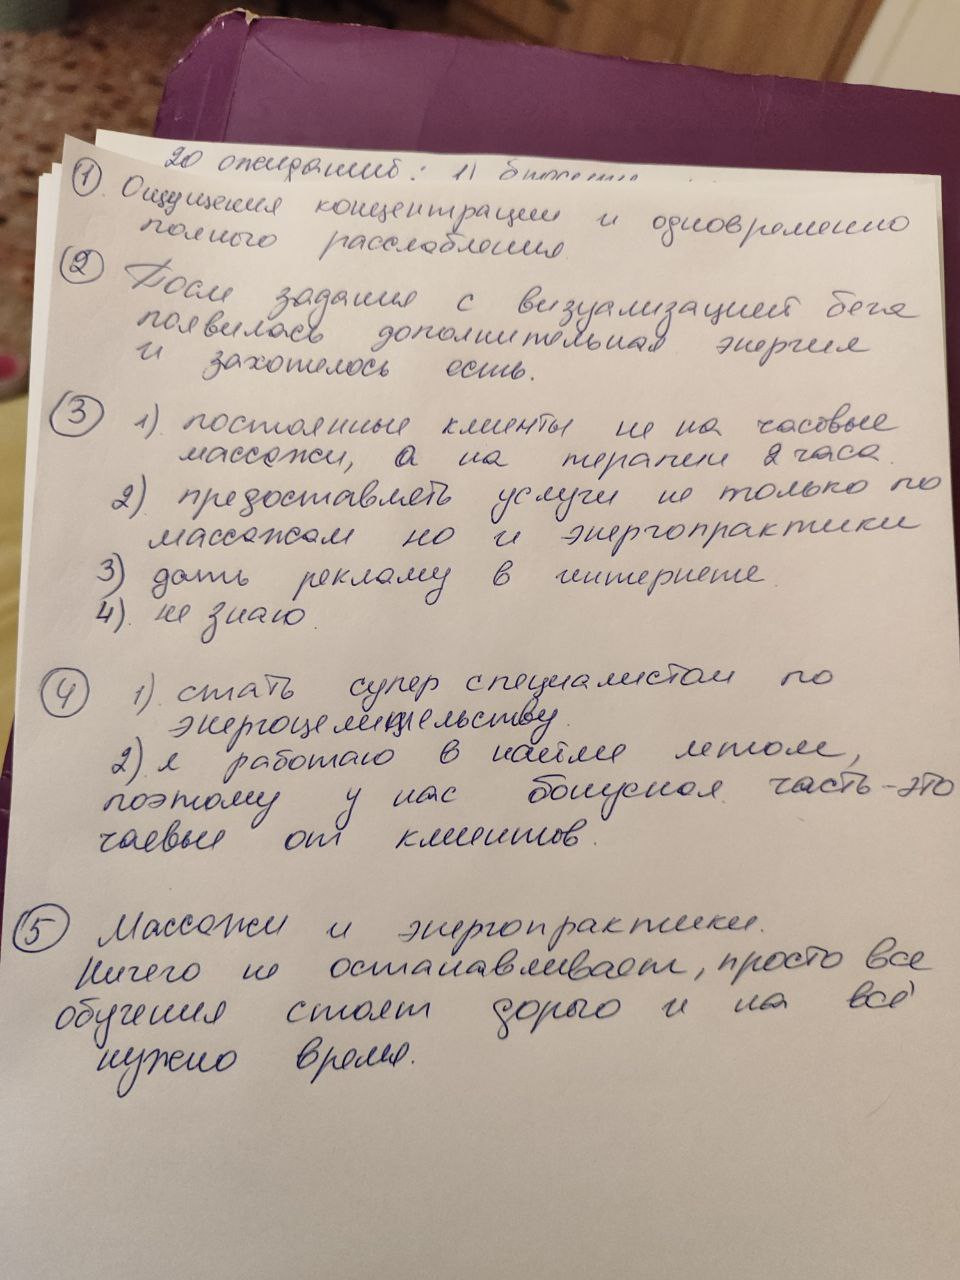 20 ожиданий: 1)
① Ощущения концентрации и одновременно
полного расслабления.
② После задания с визуализацией бега
появилась дополнительная энергия
и захотелось есть.
③ 1) постоянные клиенты не на часовые
массажи, а на терапии 2 часа.
2) предоставлять услуги не только по
массажам но и энергопрактики
3) дать рекламу в интернете.
4). не знаю.
④ 1) стать супер специалистом по
энергоцелительству.
2) я работаю в найме летом,
поэтому у нас бонусная часть - это
чаевые от клиентов.
⑤ Массажи и энергопрактики.
Ничего не останавливает, просто все
обучения стоят дорого и на всё
нужно время.